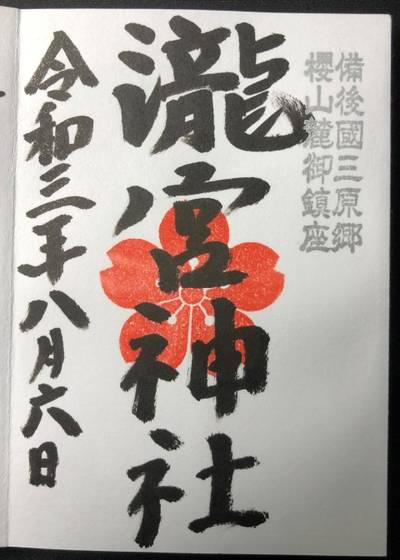 備後國三原郷
櫻山麓御鎮座
瀧宮神社
令和三年八月六日